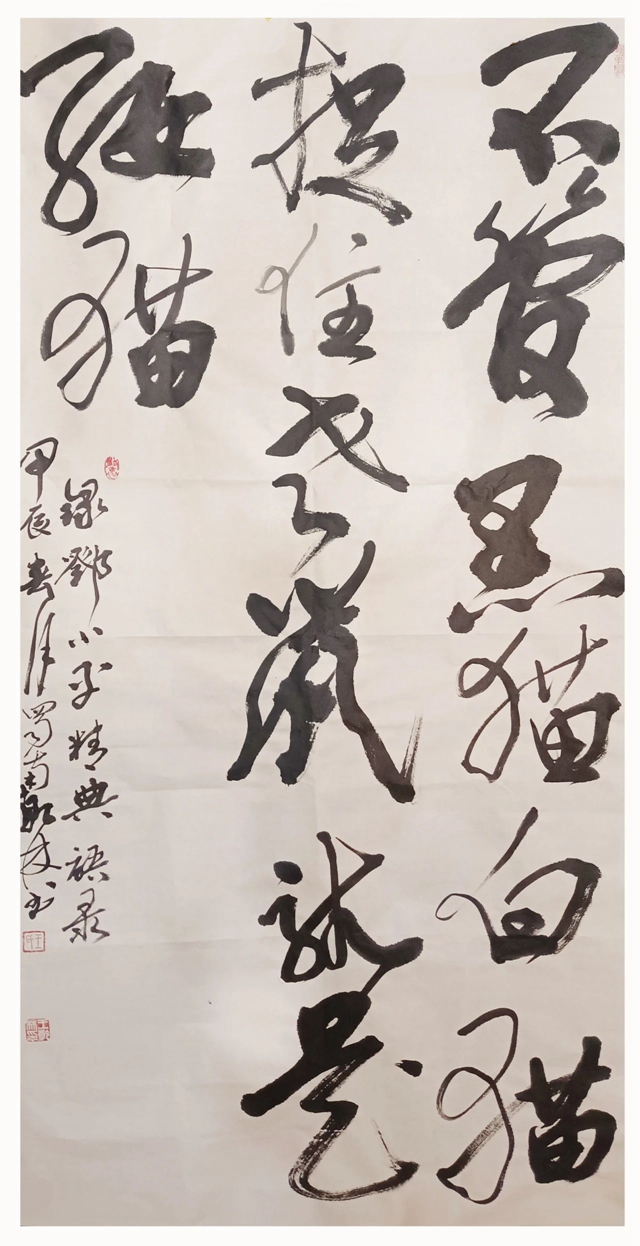 不管黑猫白猫
捉住老鼠就是
好猫
録鄧小平精典語录
甲辰春 蜀南 书